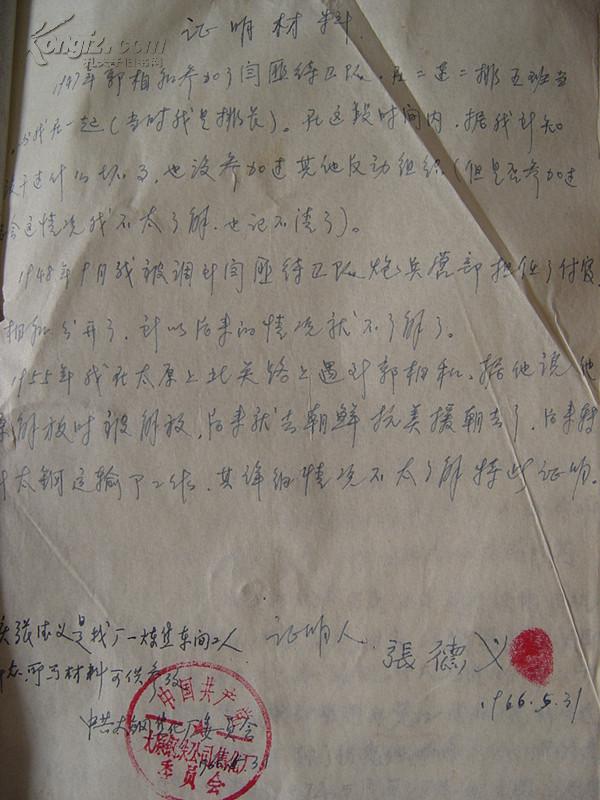 证明材料
1947年郭相和参加了闫匪待卫队，在二连二排五班当
，与我在一起(当时我是排长)。在这段时间内，据我所知
没干过什么坏事，也没参加过其他反动组织(但是否参加过
会这情况我不太了解，也记不清了)。
1948年9月我被调到闫匪待卫队炮兵营部担任了付官
相和分开了，所以后来的情况就不了解了。
1955年我在太原上北关路上遇到郭相和，据他说他
原解放时被解放，后来就去朝鲜抗美援朝去了，后来转
到太钢运输部工作，其详细情况不太了解特此证明。
证明人
張德义
1966.5.31
张德义是我厂一炼焦车间工人
所写材料可供参考
中共太钢焦化厂委员会
中国共产党
太原钢铁公司焦化厂
委员会
kongfz.com